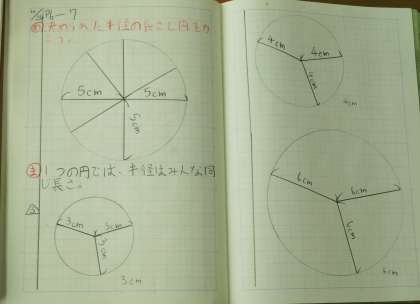 P6-7
め 決められた半径の長さし円をか
こう。
5cm
5cm
5cm
ま 1つの円では、半径はみんな同
じ長さ。
3cm
3cm
3cm
3cm
4cm
4cm
4cm
4cm
6cm
6cm
6cm
6cm